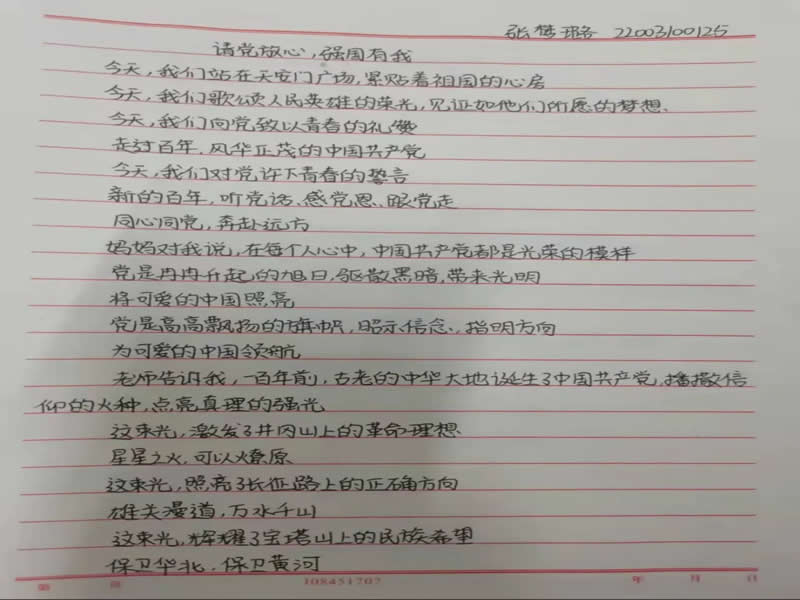 张梦璐 22003100125
请党放心,强国有我
今天,我们站在天安门广场,紧贴着祖国的心房
今天,我们歌颂人民英雄的荣光,见证如他们所愿的梦想.
今天,我们向党致以青春的礼赞
走过百年,风华正茂的中国共产党
今天,我们对党许下青春的誓言
新的百年,听党话、感党恩、跟党走
同心同党,奔赴远方
妈妈对我说,在每个人心中,中国共产党都是光荣的模样
党是冉冉升起的旭日,驱散黑暗,带来光明
将可爱的中国照亮
党是高高飘扬的旗帜,昭示信念、指明方向
为可爱的中国领航
老师告诉我,一百年前,古老的中华大地诞生了中国共产党,播撒信
仰的火种,点亮真理的强光
这束光,激发了井冈山上的革命理想
星星之火,可以燎原
这束光,照亮了长征路上的正确方向
雄关漫道,万水千山
这束光,辉耀了宝塔山上的民族希望
保卫华北,保卫黄河
第 页 108451707 年 月 日